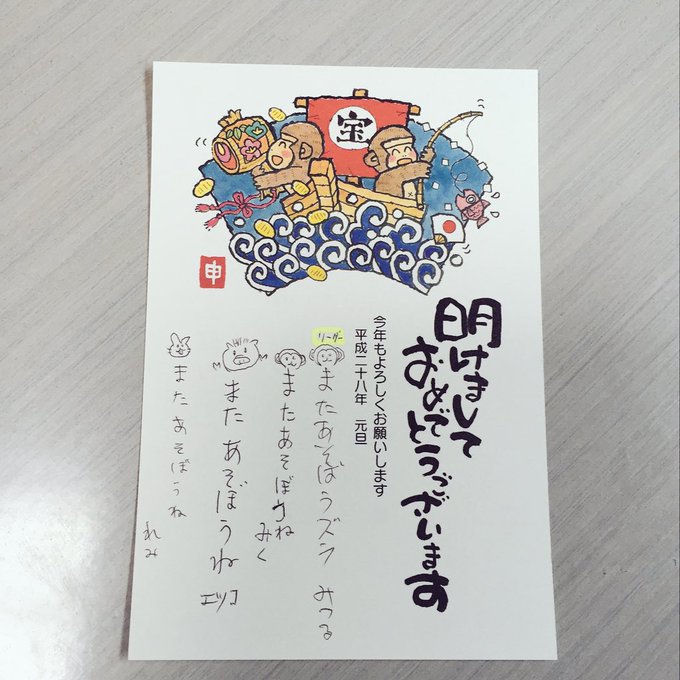 宝
申
明けまして
おめでとうございます
今年もよろしくお願いします
平成二十八年 元旦
リーダー
またあそぼうズラ みつる
またあそぼうね
みく
またあそぼうね エツコ
またあそぼうね れみ